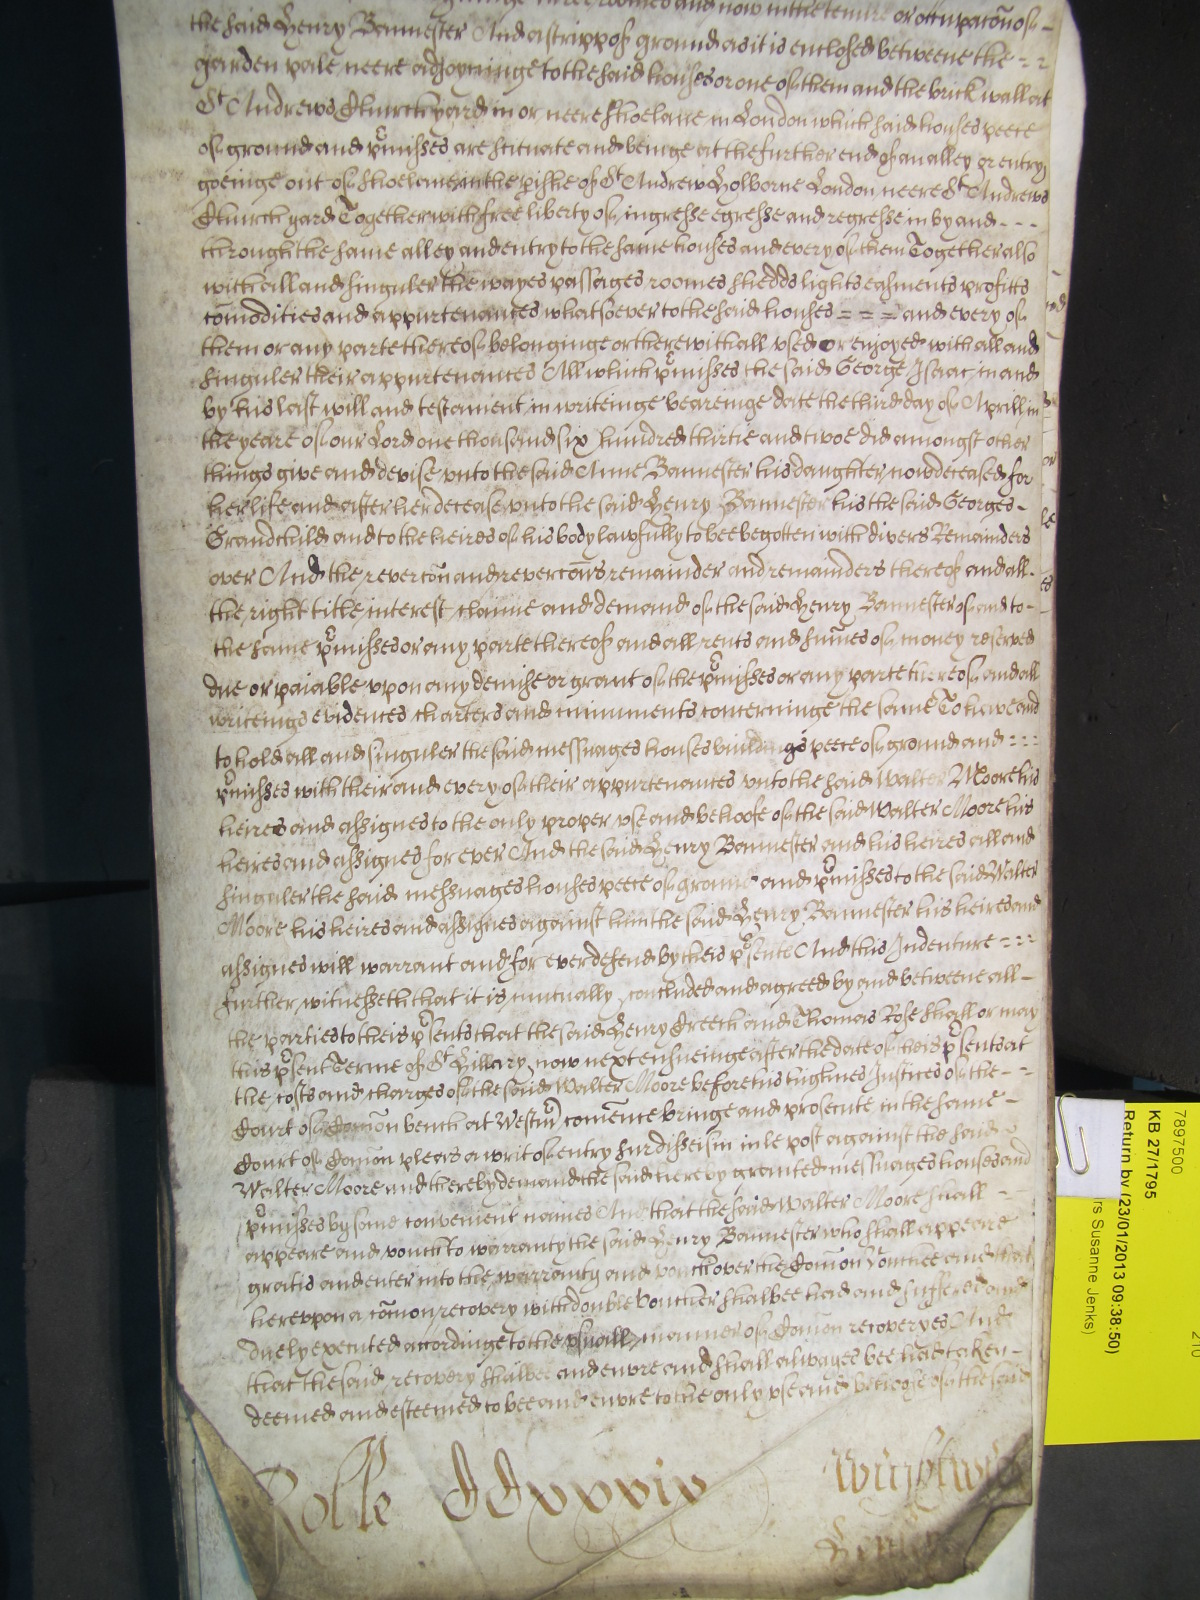 the said Henry Bannester And a stripp of ground as it is enclosed betweene the = =
garden pale neere adjoyninge to the said houses or one of them and the brick wall att
St Andrews Churchyard in or neere Shoelane in London which said houses peece
of ground and pmisses are scituate and beinge at the further end of an alley or entry
goeinge out of Shoelane in the pishe of St Andrew Holborne London neere St Andrews
Church yard Together with free liberty of ingresse egresse and regresse in by and - - -
through the same alley and entry to the same houses and every of them Together also
with all and singuler the wayes passages roomes shedds lights easments profitts
comodities and appurtenances whatsoever to the said houses = = = and every of
them or any parte thereof belonginge or therewithall used or enjoyed with all and
singuler their appurtenances All which pmisses the said George Isaac in and
by his last will and testament in writeinge beareinge date the third day of Aprill in
the yeare of our Lord one thousand six hundred thirtie and twoe did amongst other
things give and devise unto the said Anne Bannester his daughter now deceased for
her life and after her decease unto the said Henry Bannester his the said Georges -
Grandchild and to the heires of his body lawfully to bee begotten with divers Remainders
over And the revercon and revercons remainder and remainders thereof and all -
the right title interest claime and demand of the said Henry Bannester of and to -
the same pmisses or any parte thereof and all rents and sumes of money reserved
due or paiable upon any demise or grant of the pmisses or any parte thereof and all
writeings evidences charters and miniments concerninge the same To have and
to hold all and singuler the said messuages houses buildings peece of ground and - - -
pmisses with their and every of their appurtenances unto the said Walter Moore his
heires and assignes to the only proper use and behoofe of the said Walter Moore his
heires and assignes for ever And the said Henry Bannester and his heires all and
singuler the said messuages houses peece of ground and pmisses to the said Walter
Moore his heires and assignes against him the said Henry Bannester his heires and
assignes will warrant and for ever defend by theis psents And this Indenture = = =
further witnesseth that it is mutually concluded and agreed by and betweene all -
the parties to theis psents that the said Henry Creech and Thomas Rose shall or may
this psent Terme of St Hillary now next ensueinge after the date of theis psents at
the costs and charges of the said Walter Moore before his highnes Justices of the - -
Court of Comon bench at Westm comence bringe and prosecute in the same -
Court of Comon pleas a writ of entry sur disseisin in le post against the said
Walter Moore and thereby demand the said hereby granted messuages houses and
pmisses by some convenient names And that the said Walter Moore shall - -
appeare and vouch to warranty the said Henry Bannester who shall appeare
gratis and enter into the warranty and vouch over the Comon Vouchee and that
hereupon a comon recovery with double voucher shalbee had and suffered and
duely executed accordinge to the usuall manner of Comon recoveryes And
that the said recovery shalbee and enure and shall allwayes bee had taken -
deemed and esteemed to bee and enure to the only use and behoofe of the said
Rolle CCxxxix
7897500
KB 27/1795
Return by (23/01/2013 09:38:50)
rs Susanne Jenks)